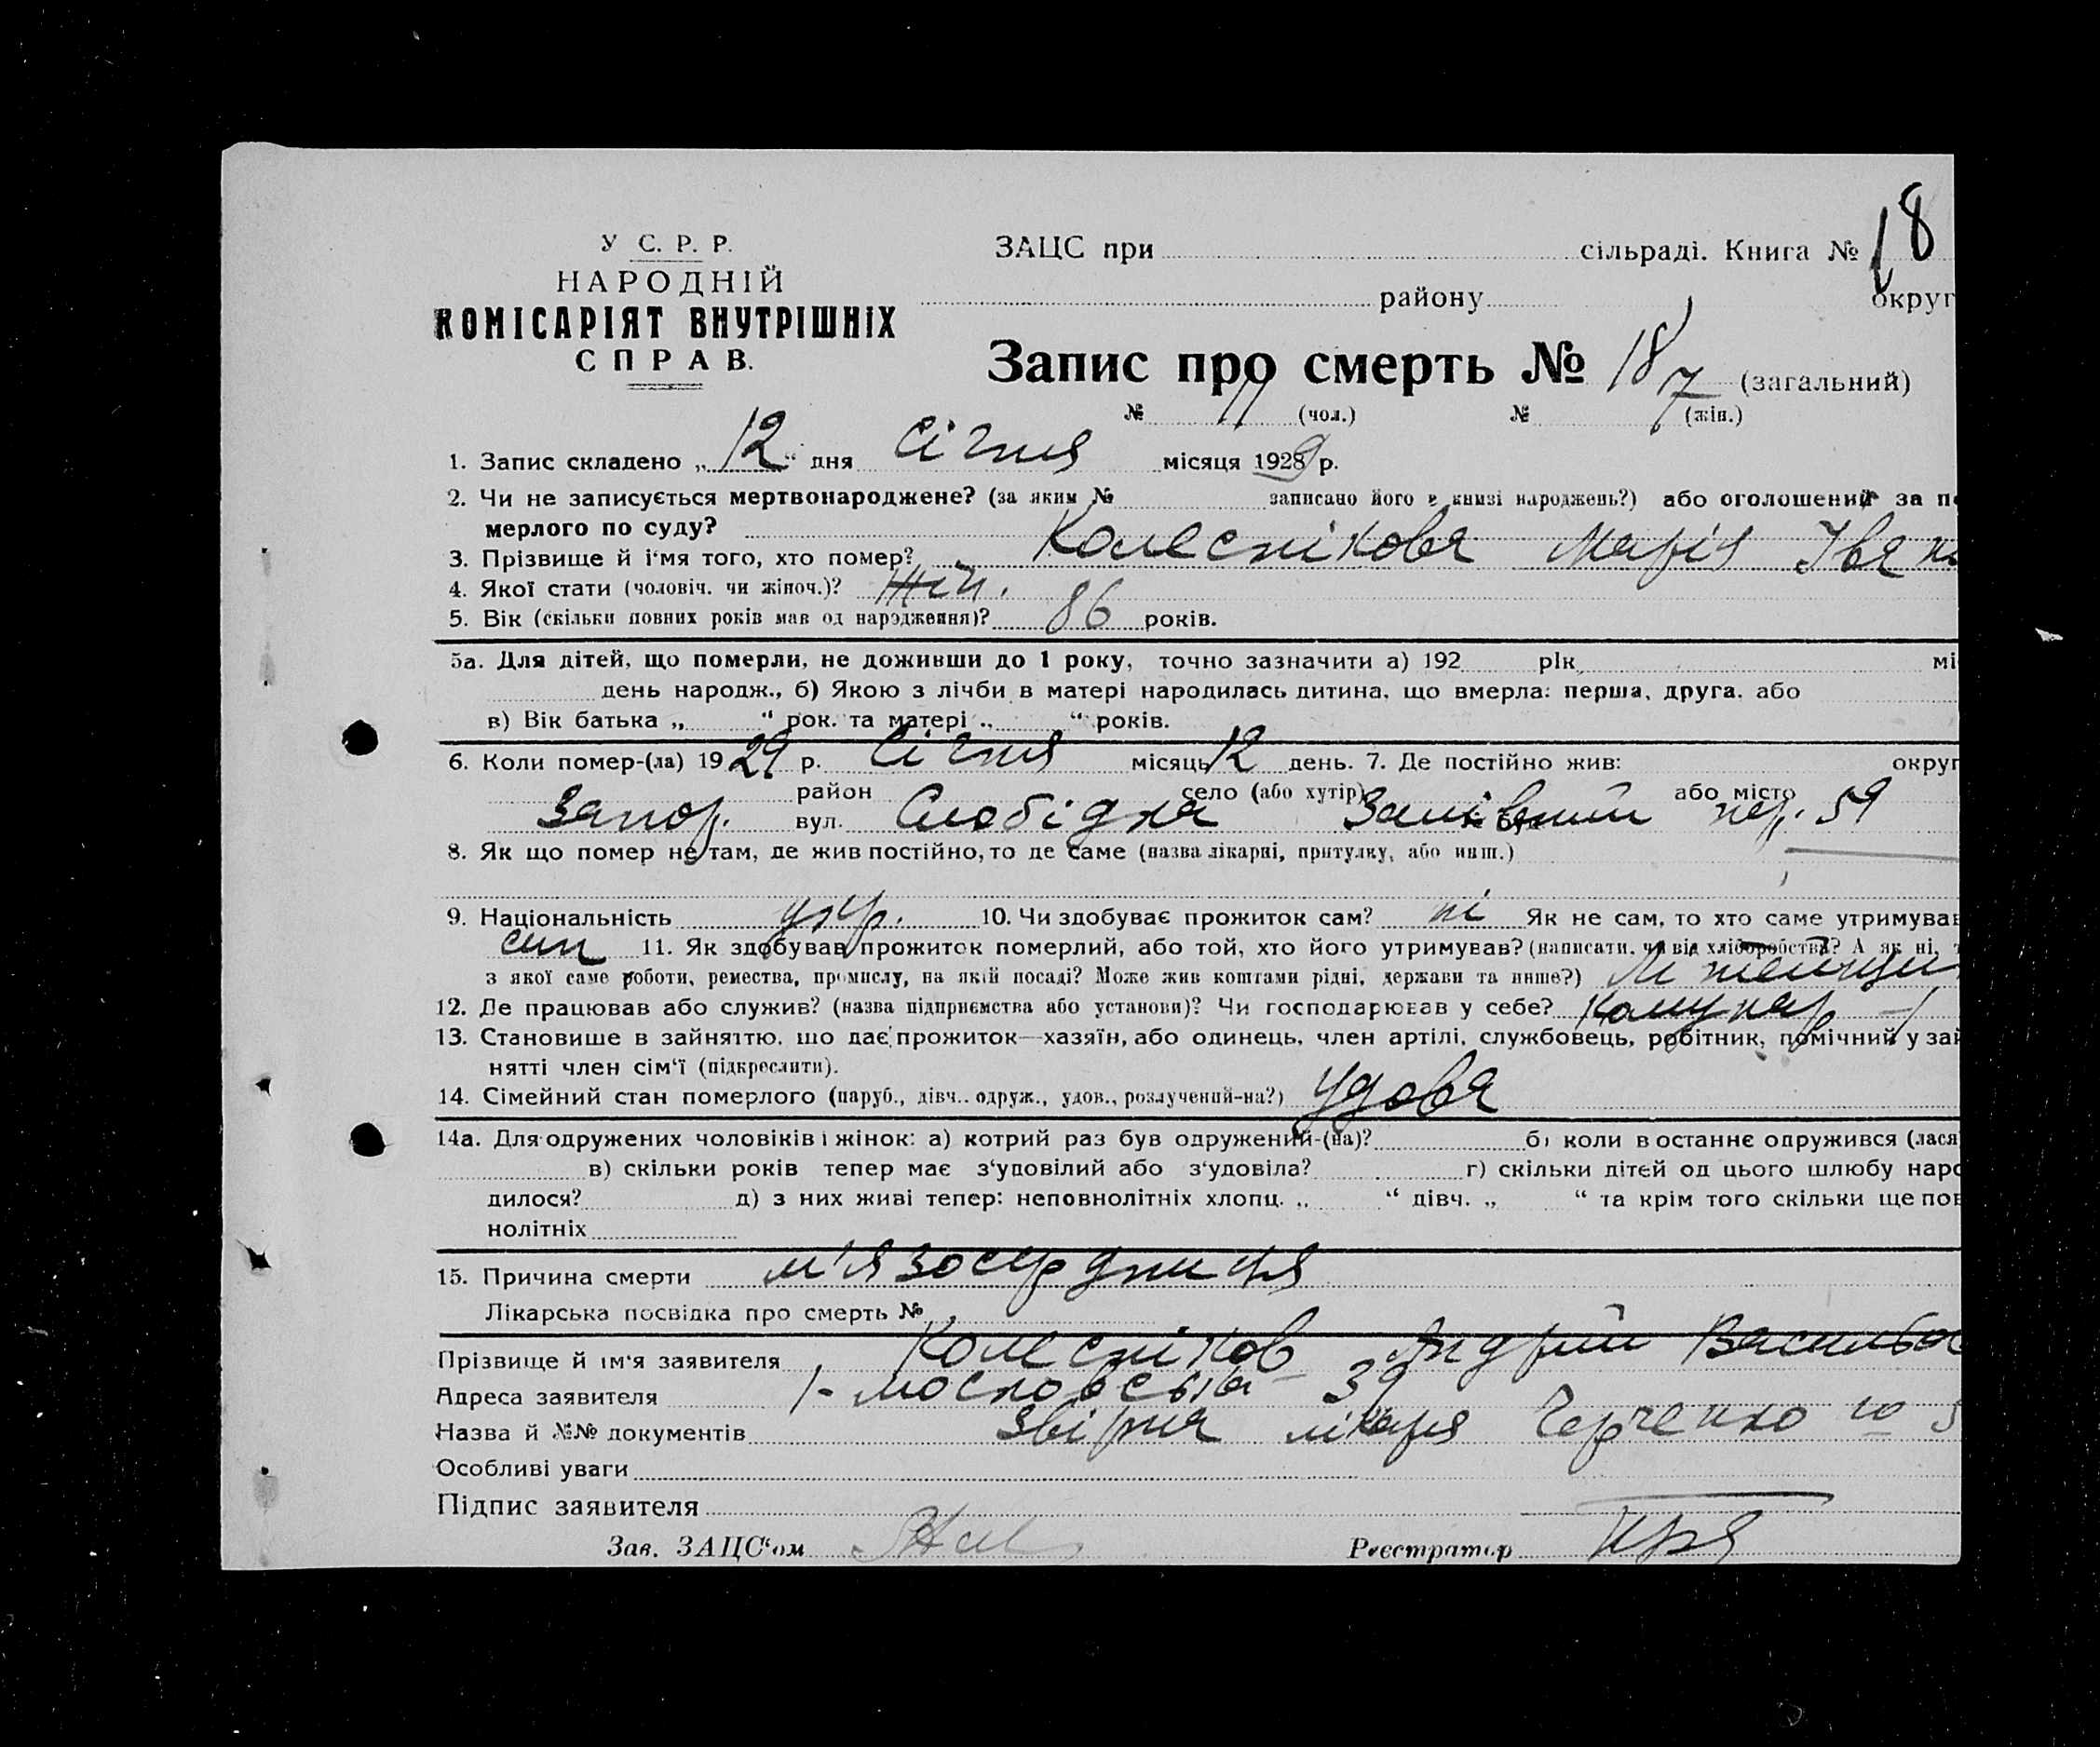 У С. Р. Р.
НАРОДНІЙ
КОМІСАРІЯТ ВНУТРІШНІХ
СПРАВ.
18
ЗАЦС при сільраді. Книга №
району округ
Запис про смерть № 18 (загальний)
№ 11 (чол.) № 7 (жін.)
1. Запис складено „12“ дня Січня місяця 1929 р.
2. Чи не записується мертвонароджене? (за яким № записано його в книзі народжень?) або оголошений за по
мерлого по суду?
3. Прізвище й і‘мя того, хто помер? Колеснікова Марія Іван
4. Якої стати (чоловіч. чи жіноч.)? жін.
5. Вік (скільки повних років мав од народження)? 86 років.
5а. Для дітей, що померли, не доживши до 1 року, точно зазначити а) 192 рік мі
день народж., б) Якою з лічби в матері народилась дитина, що вмерла: перша, друга. або
в) Вік батька „ “ рок. та матері „ “ років.
6. Коли помер-(ла) 1929 р. Січня місяць 12 день. 7. Де постійно жив: округ
район село (або хутір) або місто
Запор. вул. Слобідка пер. 59
8. Як що помер не там, де жив постійно, то де саме (назва лікарні, притулку, або инш.)
9. Національність укр. 10. Чи здобуває прожиток сам? ні Як не сам, то хто саме утримував
син 11. Як здобував прожиток померлий, або той, хто його утримував? (написати, чи від хліборобства? А як ні, т
з якої саме роботи, ремества, промислу, на якій посаді? Може жив коштами рідні, держави та инше?)
12. Де працював або служив? (назва підприємства або установи)? Чи господарював у себе? Комунар
13. Становище в зайняттю, що дає прожиток—хазяїн, або одинець, член артілі, службовець, робітник, помічний у зай
нятті член сім‘ї (підкреслити).
14. Сімейний стан померлого (паруб., дівч., одруж., удов., розлучений-на?) Удова
14а. Для одружених чоловіків і жінок: а) котрий раз був одружений-(на)? б) коли в останнє одружився (лася
в) скільки років тепер має з‘удовілий або з‘удовіла? г) скільки дітей од цього шлюбу наро
дилося? д) з них живі тепер: неповнолітніх хлопц. „ “ дівч. „ “ та крім того скільки ще пов
нолітніх
15. Причина смерти м'язосердниця
Лікарська посвідка про смерть №
Прізвище й ім‘я заявителя Колесніков Андрій Васильов
Адреса заявителя 1- Московська 39
Назва й №№ документів лікаря
Особливі уваги
Підпис заявителя
Зав. ЗАЦС‘ом Реєстратор